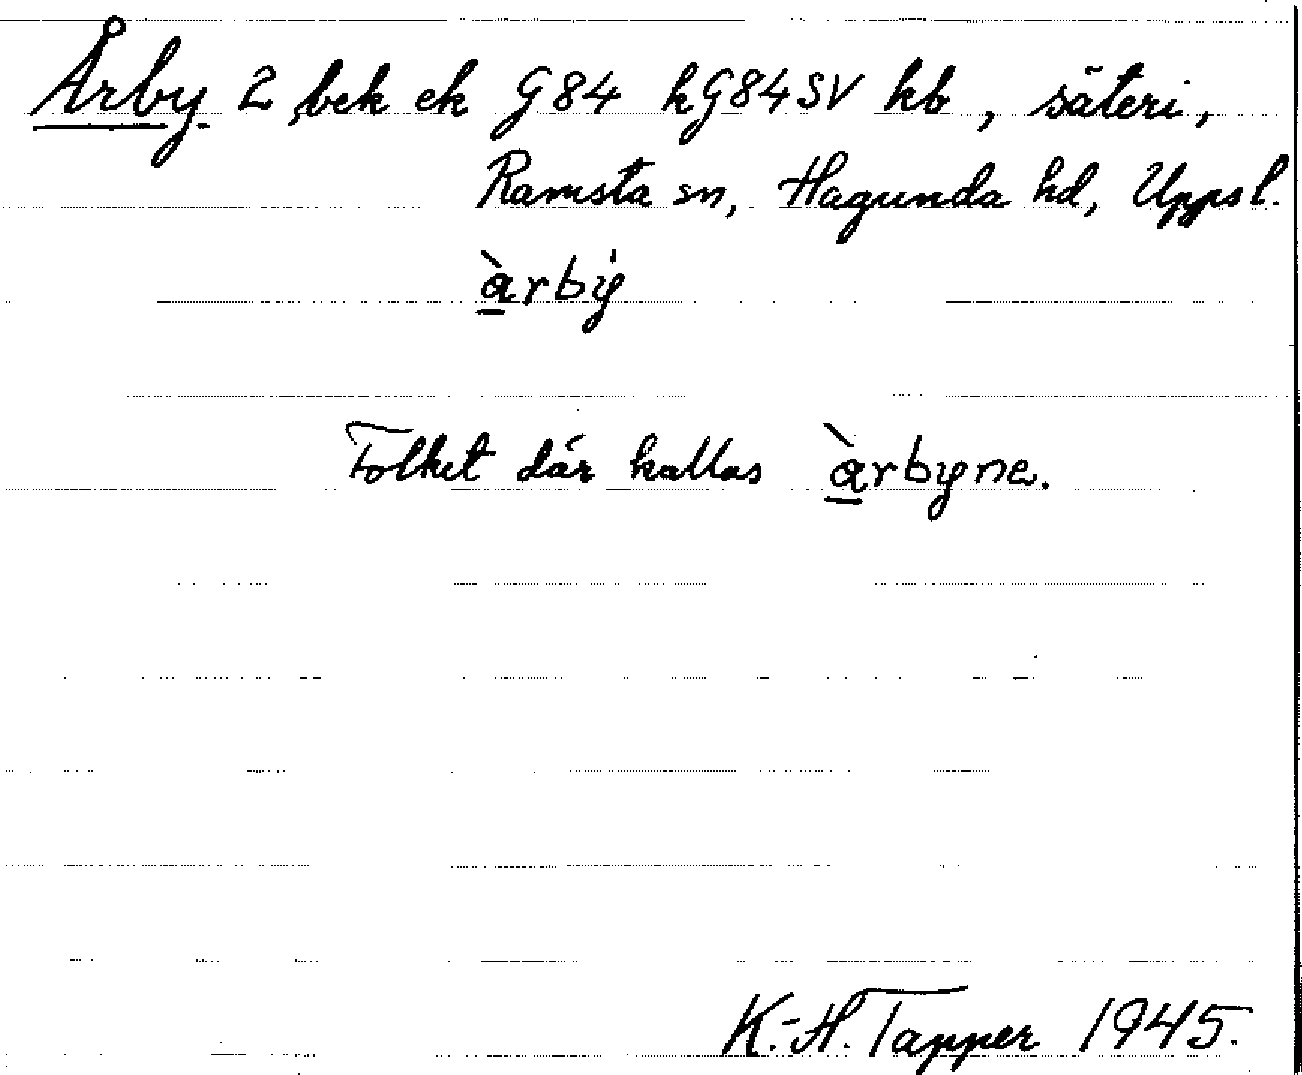 Årby 2 bek ek G84 hG84SV kb, säteri,
Ramsta sn, Hagunda hd, Uppsl.
àrbẏ
Folket där kallas àrbyne.
K.-H. Tapper 1945.